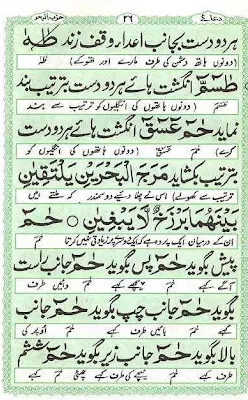 دعائے ۲۶ حزب البحر
ہر دو دست بجانب اعداء وقف زند طٰہٰ
(دونوں ہاتھ دشمن کی طرف مارے اور تھوکے) طٰہٰ
طٰسٓمّٓ انگشت ہائے ہر دو دست بترتیب بند
(دونوں ہاتھوں کی انگلیوں کو ترتیب سے بند
نماید حٰمٓ عٓسٓقٓ انگشت ہائے ہر دو دست
کرے) (دونوں ہاتھوں کی انگلیوں کو
بترتیب بکشاید مَرَجَ الْبَحْرَيْنِ يَلْتَقِيٰنِ
ترتیب سے کھولے) اس نے چلا دیئے دو سمندر کہ ملتے ہیں
بَيْنَهُمَا بَرْزَخٌ لَّا يَبْغِيٰنِ ○ حٰمٓ
ان کے درمیان ایک پردہ ہے کہ ایک دوسرے پر زیادتی نہیں کرتا حٰمٓ
پیش بگوید حٰمٓ پس بگوید حٰمٓ جانب راست
آگے کہے حٰمٓ پیچھے کہے حٰمٓ دائیں طرف
بگوید حٰمٓ جانب چپ بگوید حٰمٓ جانب
کہے حٰمٓ بائیں طرف کہے حٰمٓ اوپر کی
بالا بگوید حٰمٓ جانب زیر بگوید حٰمٓ ششم
طرف کہے حٰمٓ نیچے کی طرف کہے حٰمٓ